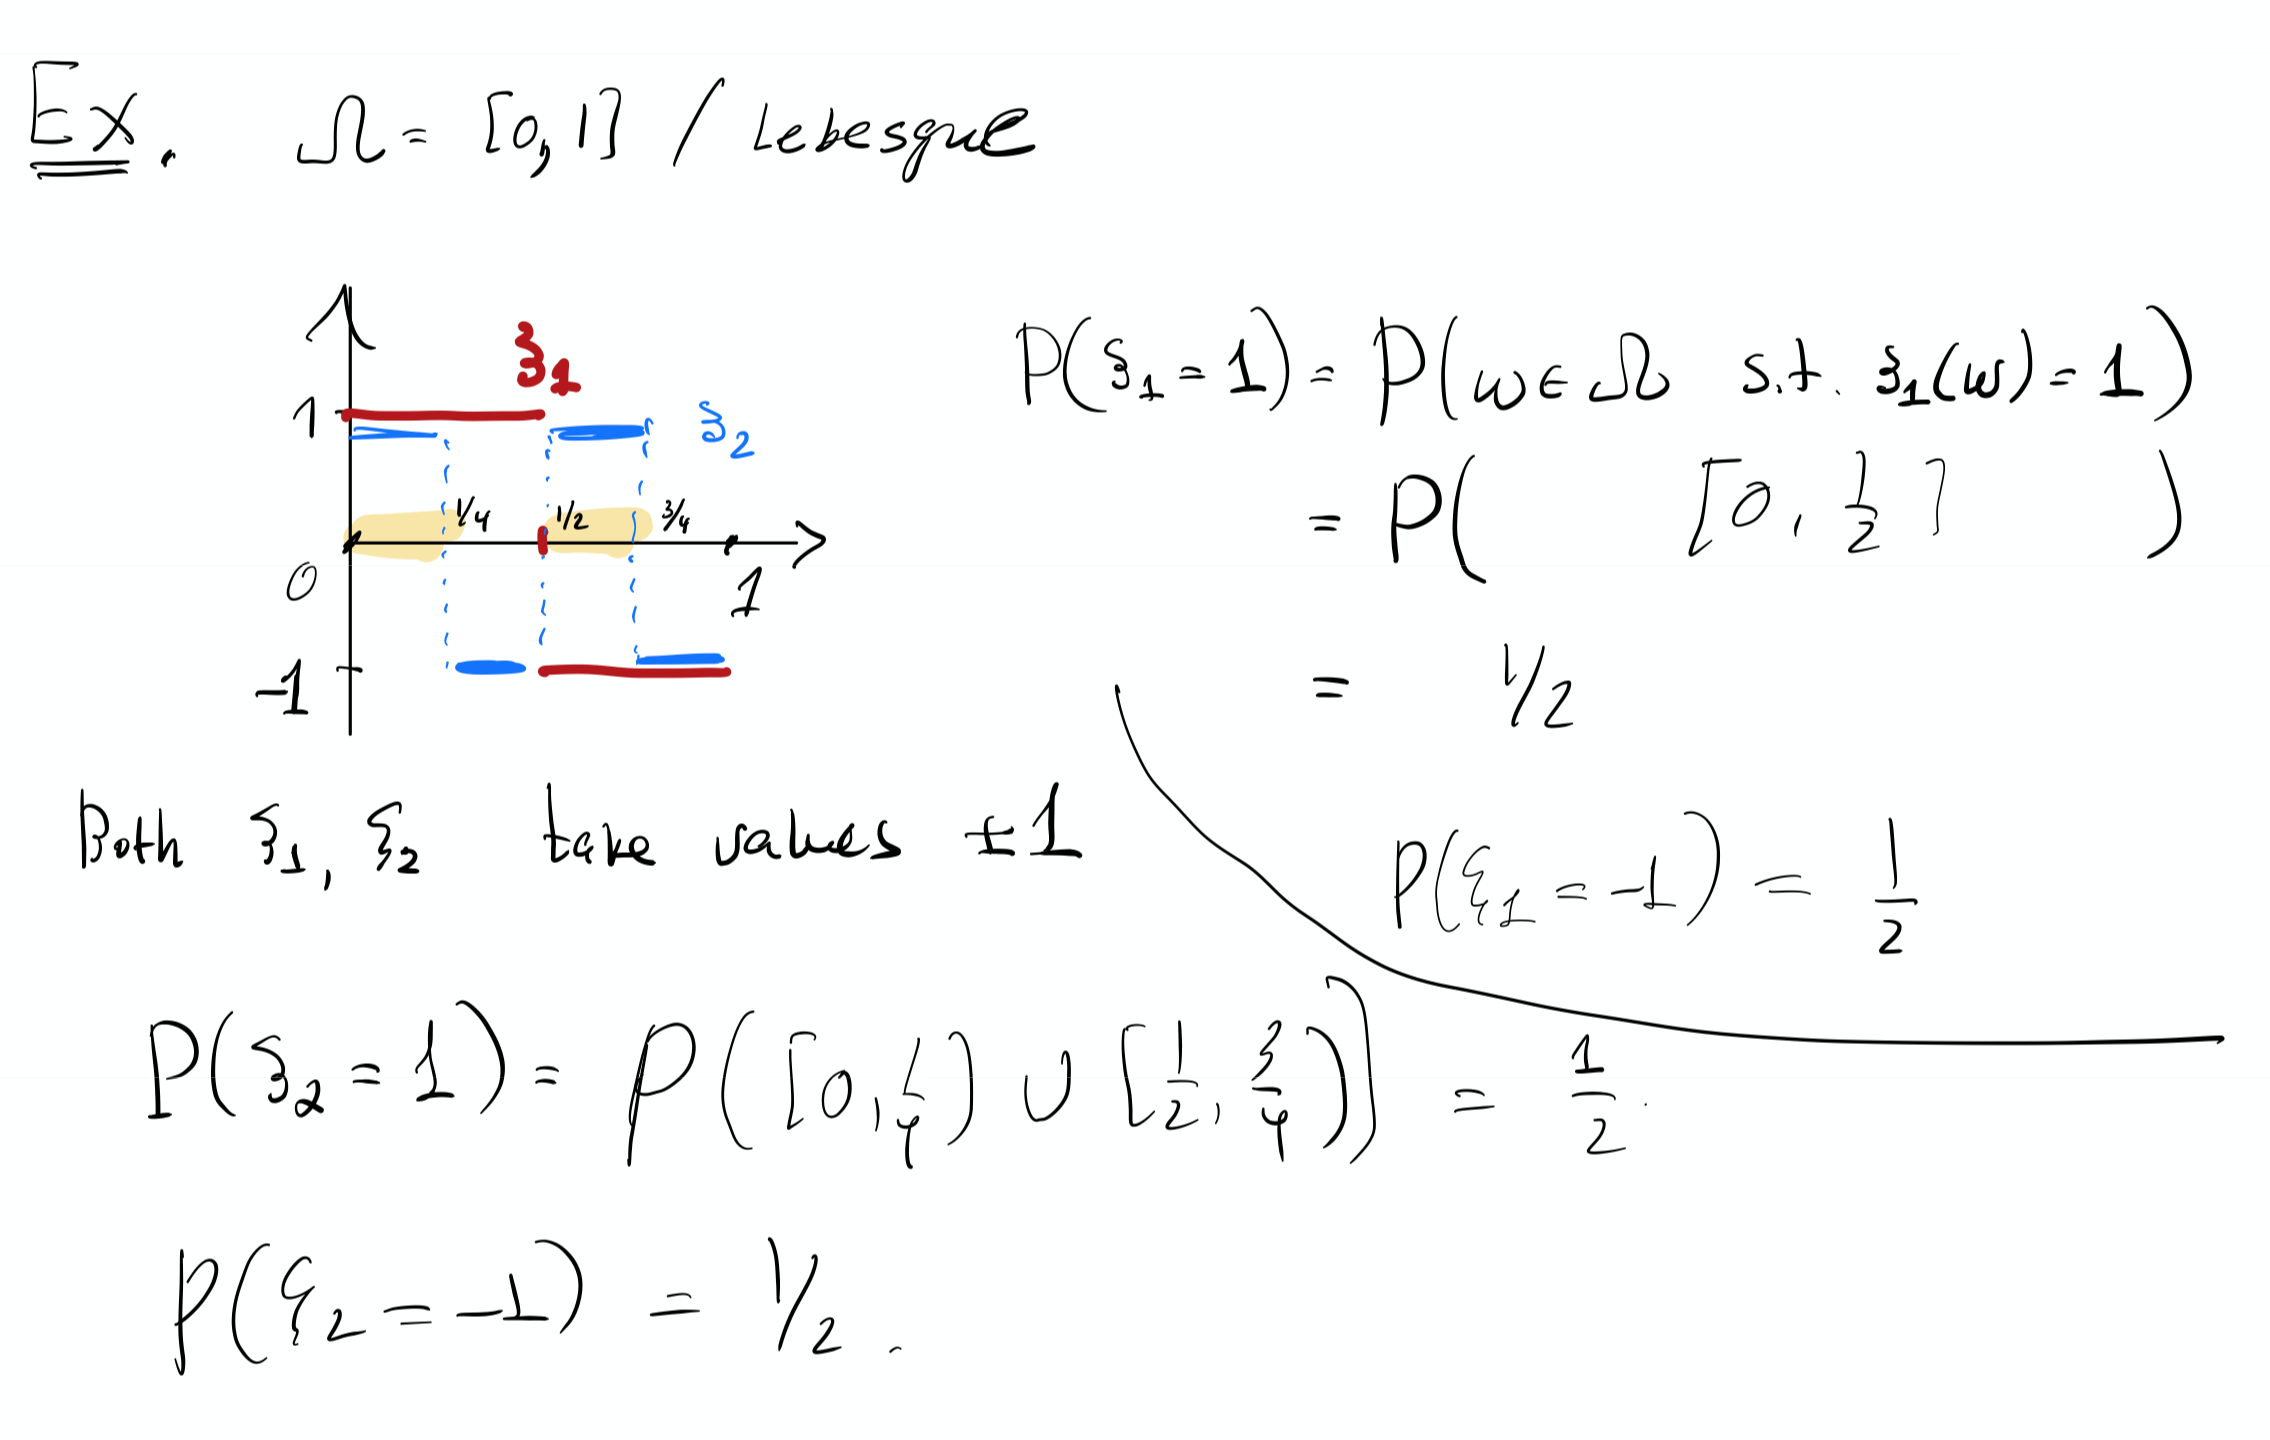 Ex. Ω = [0,1] / Lebesgue
ξ₁
1
ξ₂
1/4 1/2 3/4
0
1
-1
P(ξ₁ = 1) = P(ω ∈ Ω s.t. ξ₁(ω) = 1)
= P( [0, 1/2] )
= 1/2
Both ξ₁, ξ₂ take values ±1
P(ξ₁ = -1) = 1/2
P(ξ₂ = 1) = P([0, 1/4) ∪ [1/2, 3/4)) = 1/2.
P(ξ₂ = -1) = 1/2.